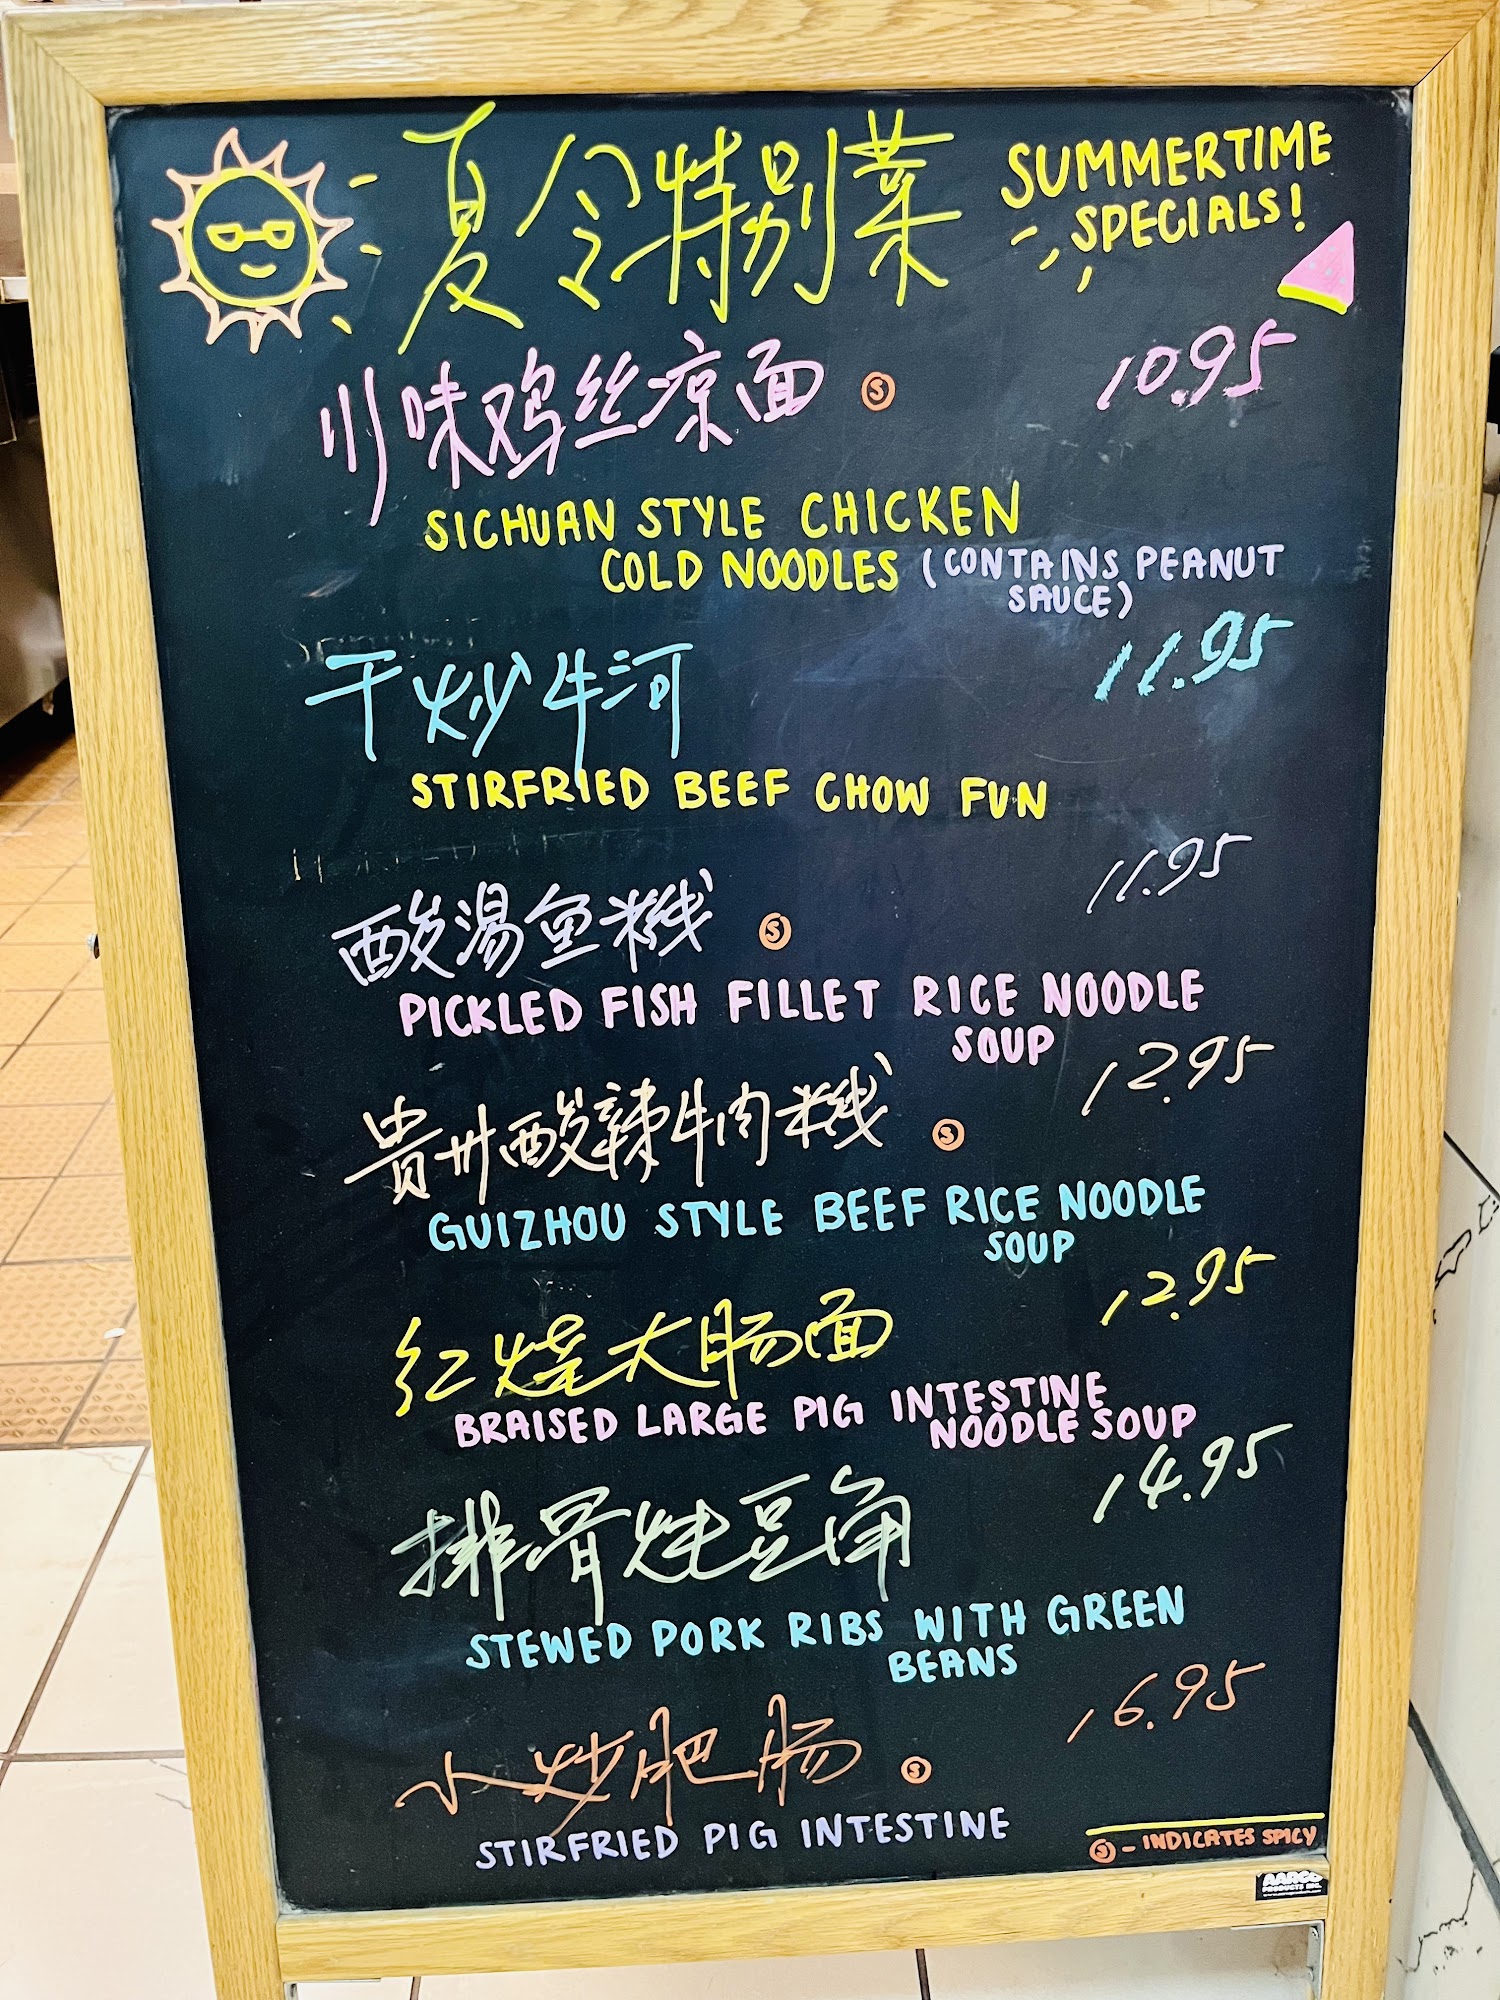 夏令特别菜
SUMMERTIME
SPECIALS!
川味鸡丝凉面 Ⓢ 10.95
SICHUAN STYLE CHICKEN
COLD NOODLES (CONTAINS PEANUT
SAUCE)
干炒牛河 11.95
STIRFRIED BEEF CHOW FUN
酸湯鱼米线 Ⓢ 11.95
PICKLED FISH FILLET RICE NOODLE
SOUP
贵州酸辣牛肉米线 Ⓢ 12.95
GUIZHOU STYLE BEEF RICE NOODLE
SOUP
红烧大肠面 12.95
BRAISED LARGE PIG INTESTINE
NOODLE SOUP
排骨炖豆角 14.95
STEWED PORK RIBS WITH GREEN
BEANS
小炒肥肠 Ⓢ 16.95
STIRFRIED PIG INTESTINE
Ⓢ - INDICATES SPICY
AARCO
PRODUCTS INC.